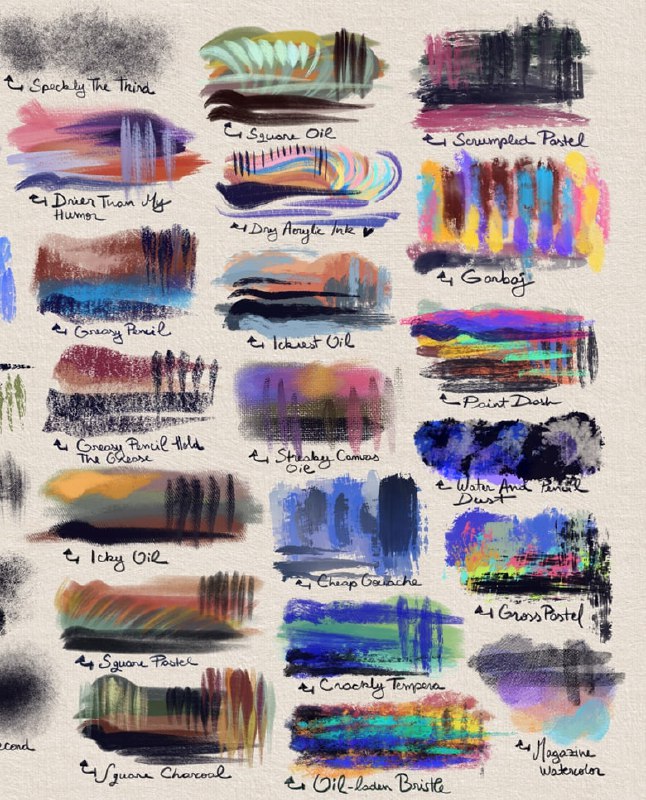 Speckly The Third
Drier Than My
Humor
Greasy Pencil
Greasy Pencil Hold
The Grease
Icky Oil
Square Pastel
Square Charcoal
econd
Square Oil
Dry Acrylic Ink ♥
Ickiest Oil
Streaky Canvas
Oil
Cheap Gouache
Crackly Tempera
Oil-laden Bristle
Scrumpled Pastel
Garbaj
Paint Dash
Water And Pencil
Dust
Gross Pastel
Magazine
Watercolor